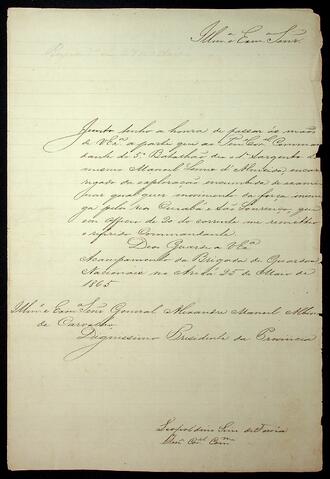 Illmo e Exmo Senr.
Junto tenho a honra de passar ás mãos
de VExa a parte que ao Tene Cel Comman
dante do 5º Batalhão deu o 1º Sargento do
mesmo Manoel Leme d'Almeida, encar
regado da exploração
por qualquer movimento da força
pelo rio Cuiabá e São Lourenço, que
em officio de 20 do corrente me remetteu
o referido Commandante.
Deos Guarde a VExa
Acampamento da Brigada de Guardas
Nacionaes no 25 de Maio de
1865
Illmo e Exmo Senr General Alexandre Manoel Albino
de Carvalho
Dignissimo Presidente da Provincia
Leopoldino Lino de Faria
Tene Cel Comm